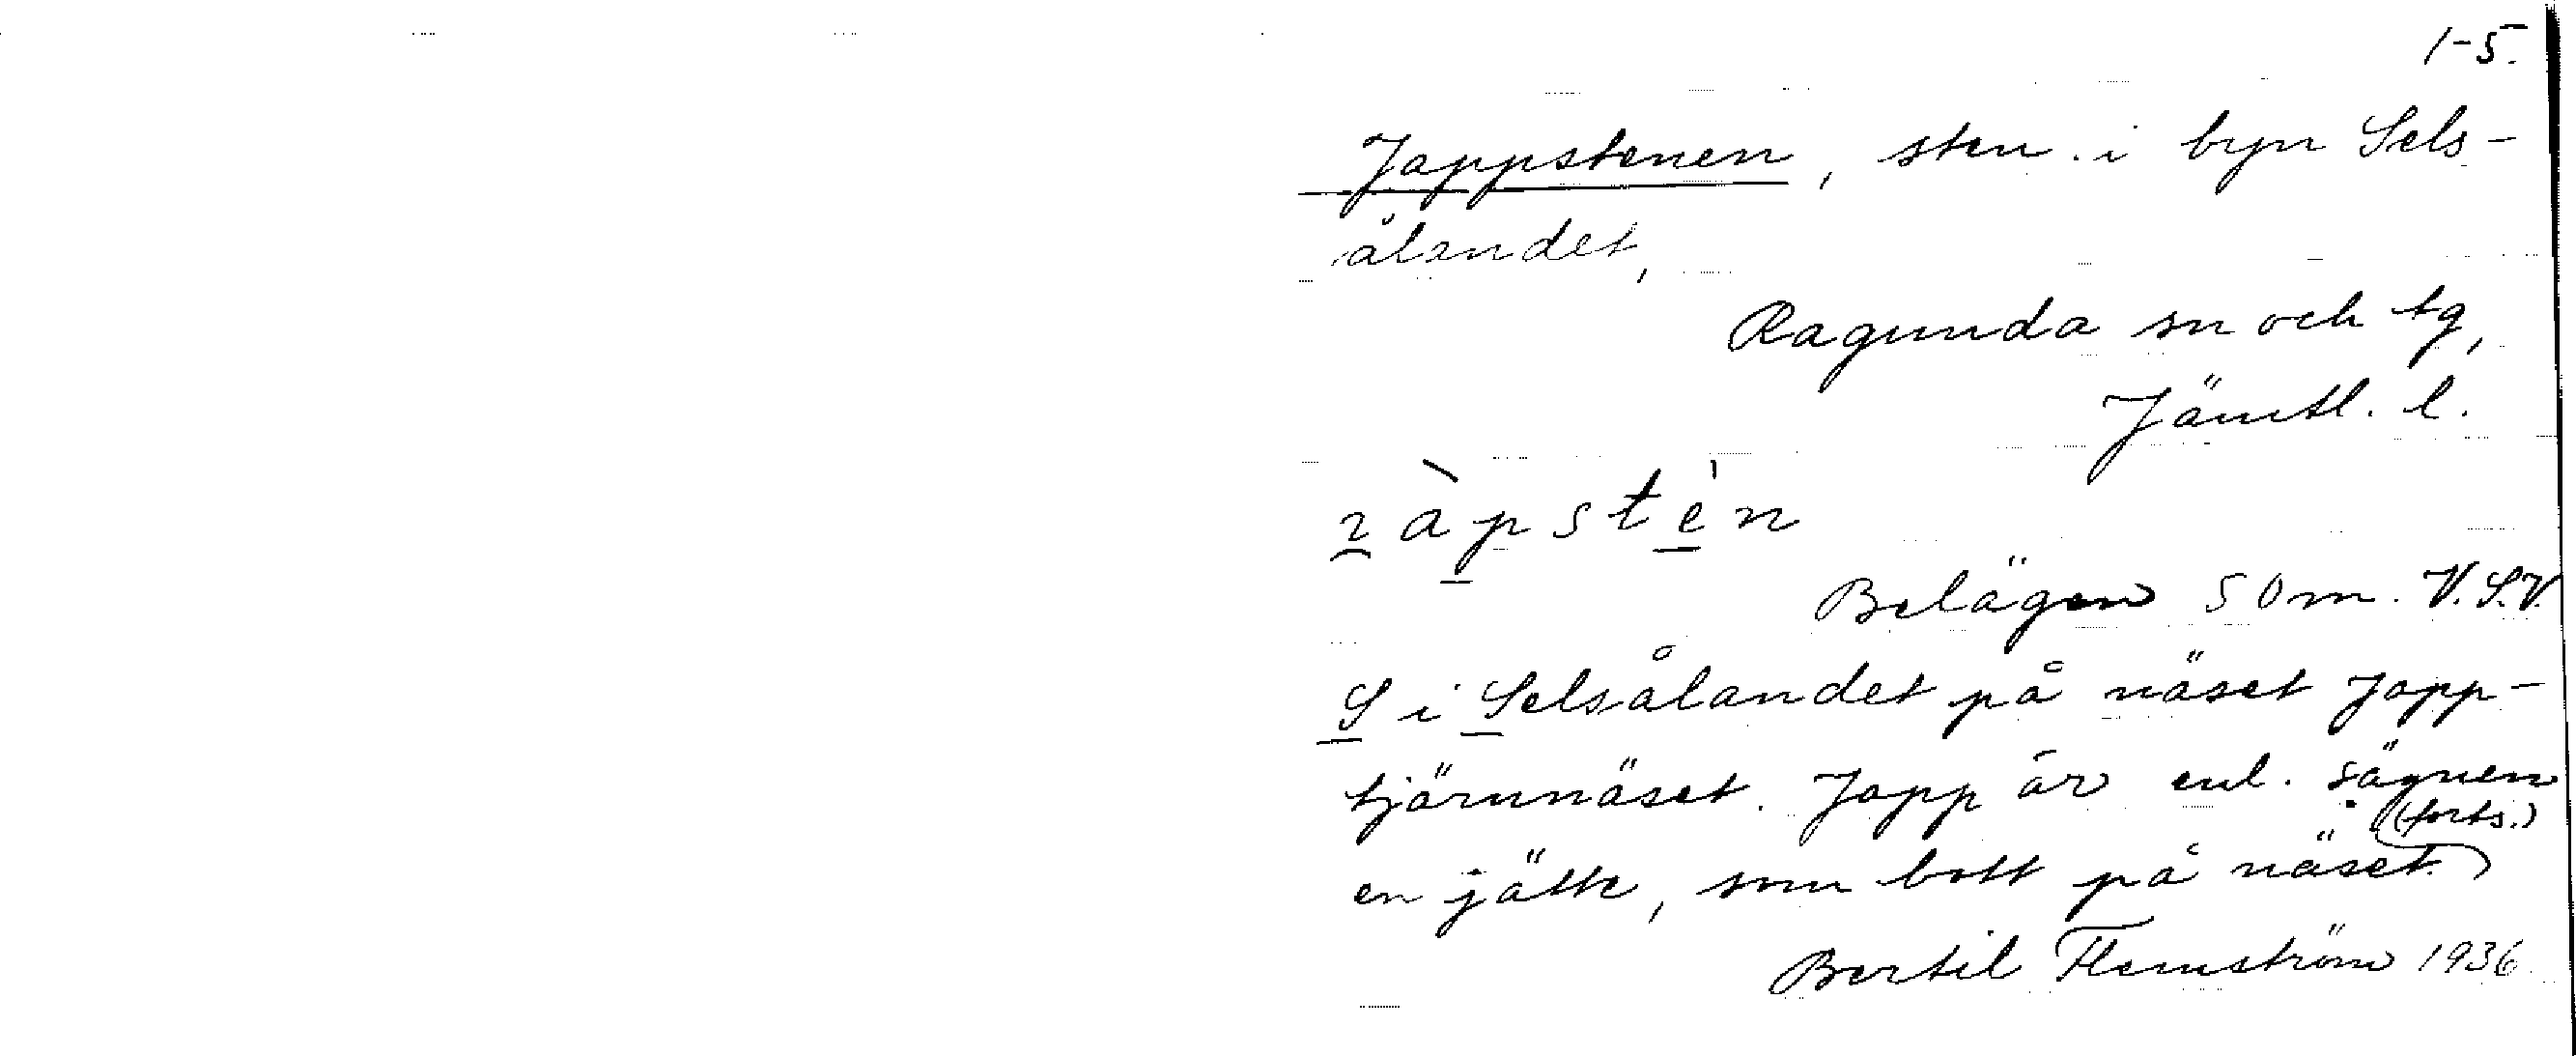 1-5.
Jappstenen, sten i byn Sels-
ålandet,
Ragunda sn och tg,
Jämtl. l.
Belägen 50 m. V.S.V.
S i Selsålandet på näset Japp-
tjärnnäset. Japp är enl. sägnen
(forts.)
en jätte, som bott på näset.
Bertil Flemström 1936